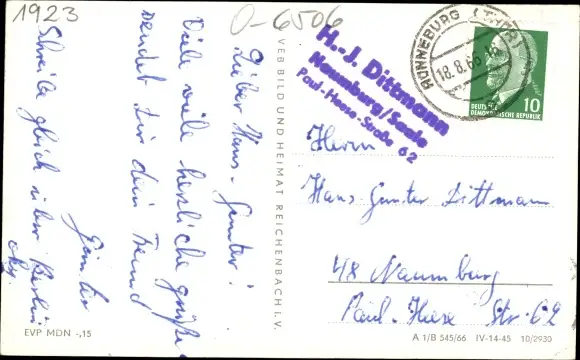 1923
O-6506
Lieber Hans-Günter!
Viele viele herzliche Grüße
sendet dir dein Freund
Günter
Schreibe gleich über Berlin
VEB BILD UND HEIMAT REICHENBACH I. V.
H.-J. Dittmann
Naumburg/Saale
Paul-Heese-Straße 62
RONNEBURG (THÜR)
18.8.66
10
DEUTSCHE
DEMOKRATISCHE REPUBLIK
Herrn
Hans-Gunter Dittmann
48 Naumburg
Paul-Hese Str. 62
EVP MDN -,15
A 1/B 545/66 IV-14-45 10/2930